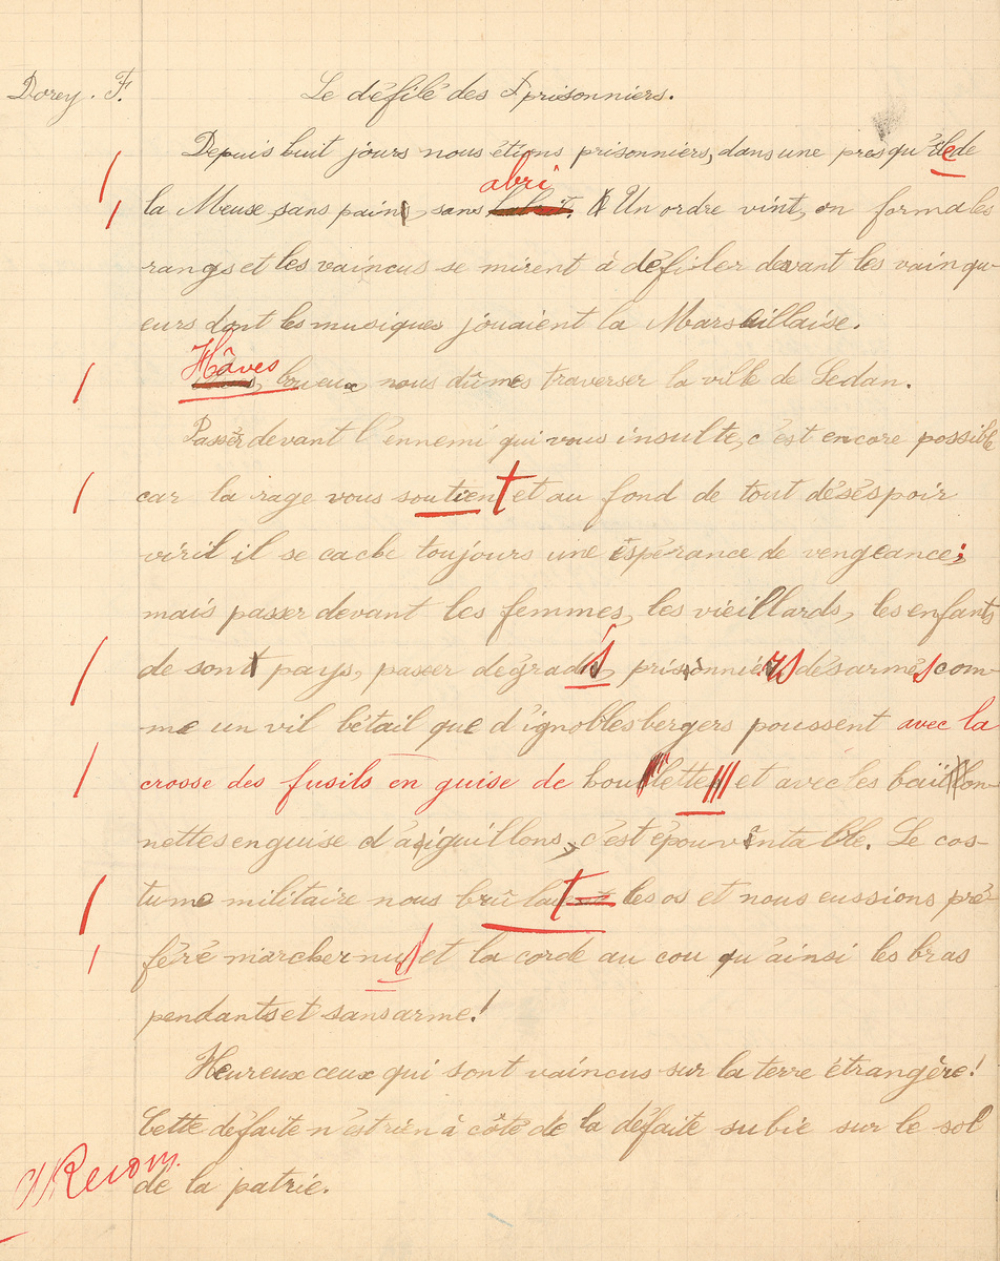 Dorey. F. Le défilé des prisonniers.
Depuis huit jours nous étions prisonniers, dans une presqu'île de
abri
la Meuse, sans pain, sans Un ordre vint, on forma les
rangs et les vaincus se mirent à défiler devant les vainqu-
eurs dont les musiques jouaient la Marseillaise.
Hâves
boueux, nous dûmes traverser la ville de Sedan.
Passer devant l'ennemi qui vous insulte, c'est encore possible
car la rage vous soutient et au fond de tout désespoir
viril il se cache toujours une espérance de vengeance;
mais passer devant les femmes, les vieillards, les enfants
de son pays, passer dégradés, prisonniers désarmés com-
me un vil bétail que d'ignobles bergers poussent avec la
crosse des fusils en guise de houlette et avec les baïon-
nettes en guise d'aiguillons, c'est épouvantable. Le cos-
tume militaire nous brûlait les os et nous eussions pré-
féré marcher nus et la corde au cou qu'ainsi les bras
pendants et sans arme!
Heureux ceux qui sont vaincus sur la terre étrangère!
Cette défaite n'est rien à côté de la défaite subie sur le sol
de la patrie.